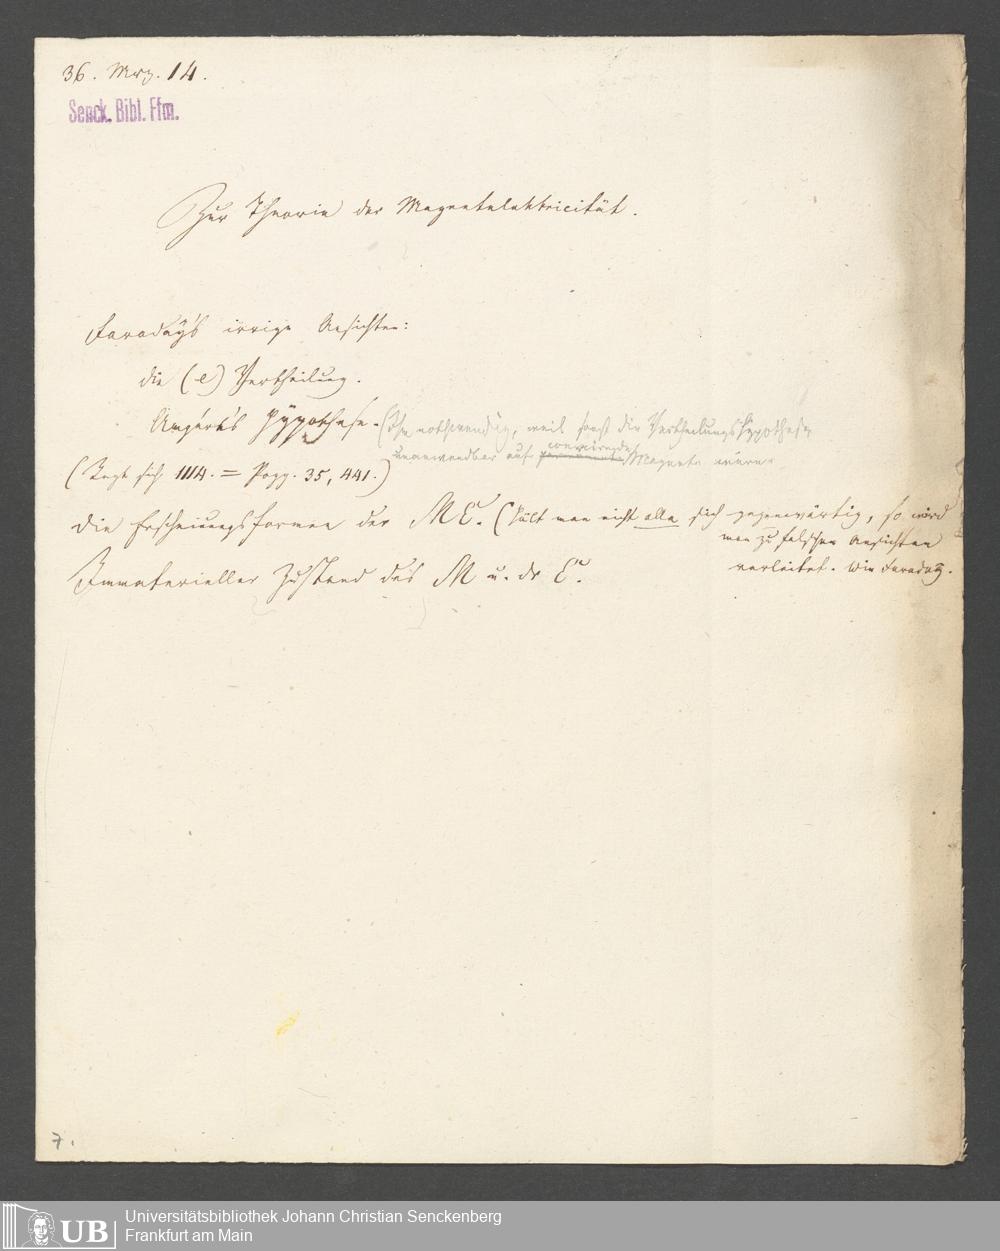 36. Mrz. 14.
Senck. Bibl. Ffm.
Zur Theorie der Magnetelektricität.
Faraday's irrige Ansichten:
die (e) Vertheilung.
Ampère's Hypothese. (Ihm nothwendig, weil sonst die Vertheilungshypothese
unanwendbar auf permanente Magnete wäre.
(Zeigt sich 1114. = Pogg. 35, 441.)
die Erscheinungsformen der ME. (Hält man nicht alle sich gegenwärtig, so wird
man zu falschen Ansichten
verleitet. Wie Faraday.
Immaterieller Zustand des M u. dr E.
7.
UB
Universitätsbibliothek Johann Christian Senckenberg
Frankfurt am Main